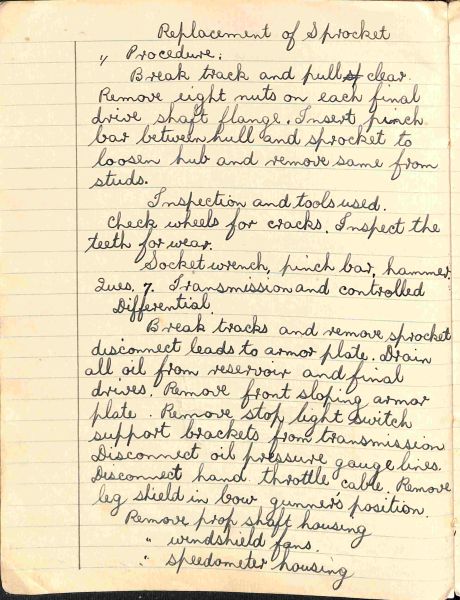 Replacement of Sprocket
" Procedure:
Break track and pull clear.
Remove eight nuts on each final
drive shaft flange. Insert pinch
bar between hull and sprocket to
loosen hub and remove same from
studs.
Inspection and tools used.
Check wheels for cracks. Inspect the
teeth for wear.
Socket wrench, pinch bar, hammer.
Ques. 7. Transmission and controlled
Differential.
Break tracks and remove sprocket
disconnect leads to armor plate. Drain
all oil from reservoir and final
drives. Remove front sloping armor
plate. Remove stop light switch
support brackets from transmission
Disconnect oil pressure gauge lines.
Disconnect hand throttle cable. Remove
leg shield in bow gunner's position.
Remove prop shaft housing
" windshield fans.
" speedometer housing